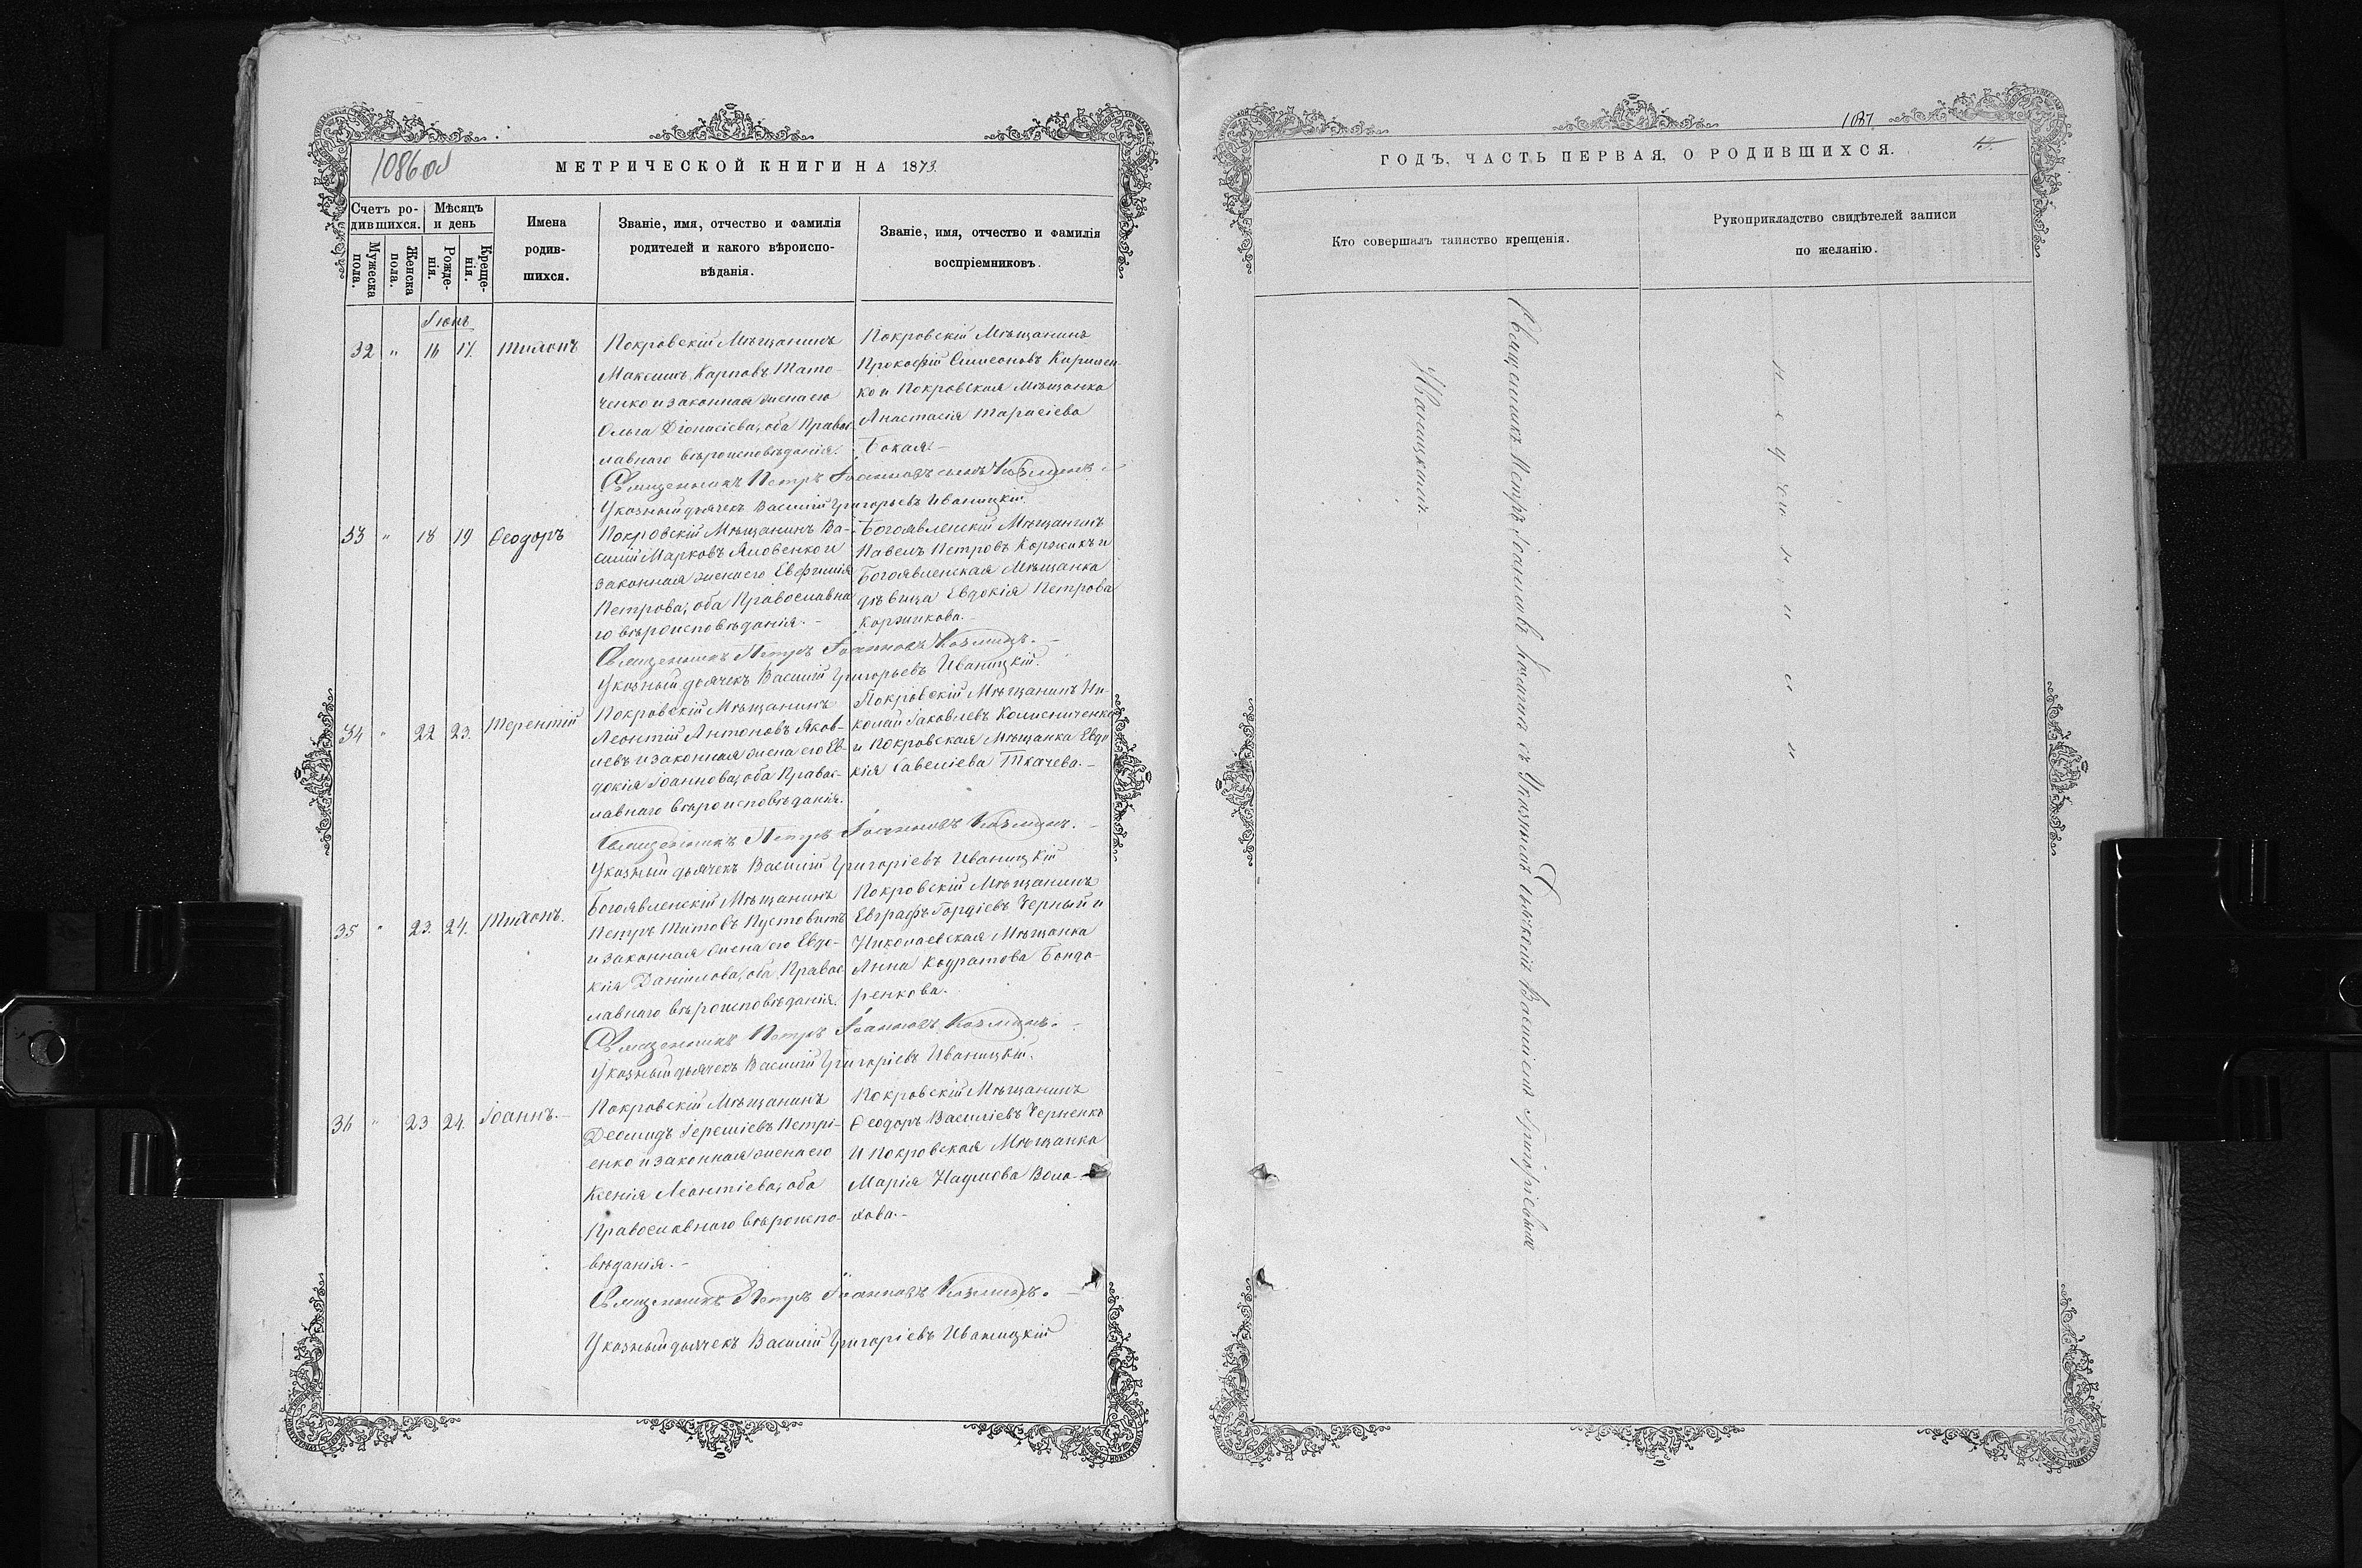 1086об
МЕТРИЧЕСКОЙ КНИГИ НА 1873.
Счетъ ро-
дившихся.
Мѣсяцъ
и день
Мужеска
пола.
Женска
пола.
Рожде-
нія.
Креще-
нія.
Имена
родив-
шихся.
Званіе, имя, отчество и фамилія
родителей и какого вѣроиспо-
вѣданія.
Званіе, имя, отчество и фамилія
воспріемниковъ.
Іюнь
32 " 16 17. Тихонъ
Покровскій Мѣщанинъ
Максимъ Карповъ Тато-
ченко и законная жена его
Ольга Діонисіева, оба Правос-
лавнаго вѣроисповѣданія.
Покровскій Мѣщанинъ
Прокофій Симеоновъ Киричен-
ко и Покровская Мѣщанка
Анастасія Тарасіева
Бокая.-
Священникъ Петръ Іоанновъ сынъ Козминъ.-
Указный дьячекъ Василій Григорьевъ Иваницкій.
33 " 18 19 Ѳеодоръ
Покровскій Мѣщанинъ Ва-
силій Марковъ Яловенко и
законная жена его Евфимія
Петрова, оба Православна-
го вѣроисповѣданія.-
Богоявленскій Мѣщанинъ
Павелъ Петровъ Коржикъ и
Богоявленская Мѣщанка
дѣвица Евдокія Петрова
Коржикова.-
Священникъ Петръ Іоанновъ Козминъ.-
Указный дьячекъ Василій Григорьевъ Иваницкій.
34 " 22 23. Терентій
Покровскій Мѣщанинъ
Леонтій Антоновъ Яков-
левъ и законная жена его Ев-
докія Іоаннова, оба Правос-
лавнаго вѣроисповѣданія.
Покровскій Мѣщанинъ Ни-
колай Іаковлевъ Колисниченко
и Покровская Мѣщанка Евдо
кія Савеліева Ткачева.-
Священникъ Петръ Іоанновъ Козминъ.-
Указный дьячекъ Василій Григоріевъ Иваницкій
35 " 23. 24. Тихонъ.
Богоявленскій Мѣщанинъ
Петръ Титовъ Пустовитъ
и законная жена его Евдо-
кія Даніилова, оба Правос-
лавнаго вѣроисповѣданія.
Покровскій Мѣщанинъ
Евграфъ Гордіевъ Черный и
Николаевская Мѣщанка
Анна Кодратова Бонда-
ренкова.
Священникъ Петръ Іоанновъ Козминъ.-
Указный дьячекъ Василій Григоріевъ Иваницкій.
36 " 23 24. Іоаннъ.-
Покровскій Мѣщанинъ
Деомидъ Іереміевъ Петри-
енко и законная жена его
Ксенія Леонтіева, оба
Православнаго вѣроиспо-
вѣданія.-
Покровскій Мѣщанинъ
Ѳеодоръ Василіевъ Черненко
и Покровская Мѣщанка
Марія Наумова Воло-
хова.-
Священникъ Петръ Іоанновъ Козминъ.-
Указный дьячекъ Василій Григоріевъ Иваницкій
1087
ГОДЪ, ЧАСТЬ ПЕРВАЯ, О РОДИВШИХСЯ.
Кто совершалъ таинство крещенія.
Рукоприкладство свидѣтелей записи
по желанію.
Священникъ Петръ Іоанновъ Козминъ съ Указнымъ Дьячкомъ Василіемъ Григоріевымъ
Иваницкимъ.-